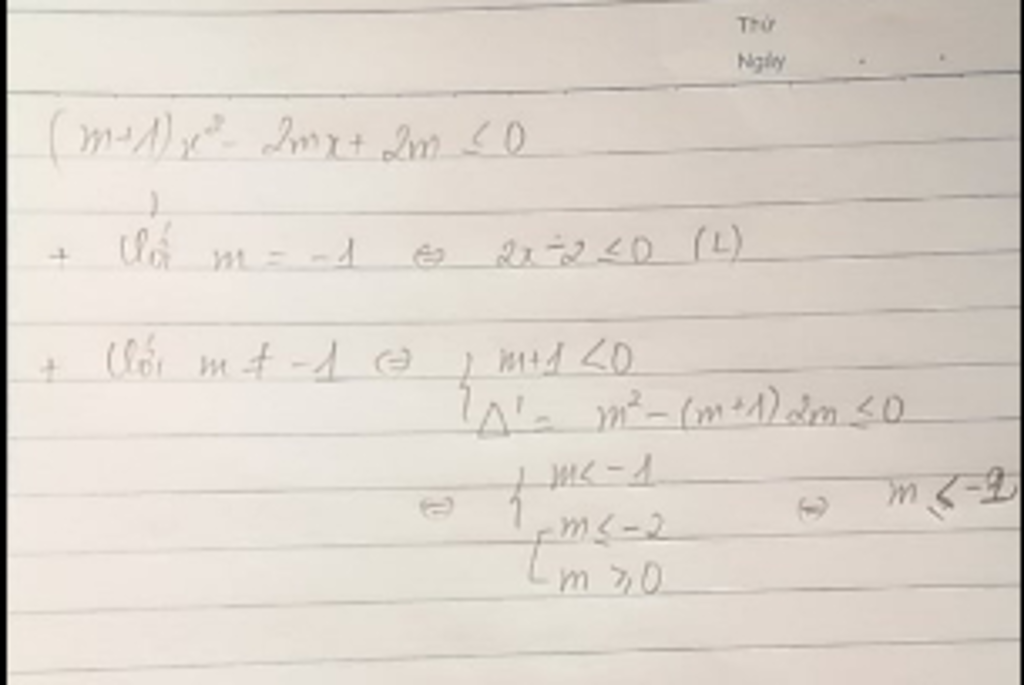 Thứ
Ngày . .
(m+1)x² - 2mx + 2m ≤ 0
+ Với m = -1 ⇔ 2x - 2 ≤ 0 (L)
+ Với m ≠ -1 ⇔ { m+1 < 0
Δ' = m² - (m+1)2m ≤ 0
⇔ { m < -1
[ m ≤ -2 ⇔ m ≤ -2
m ≥ 0